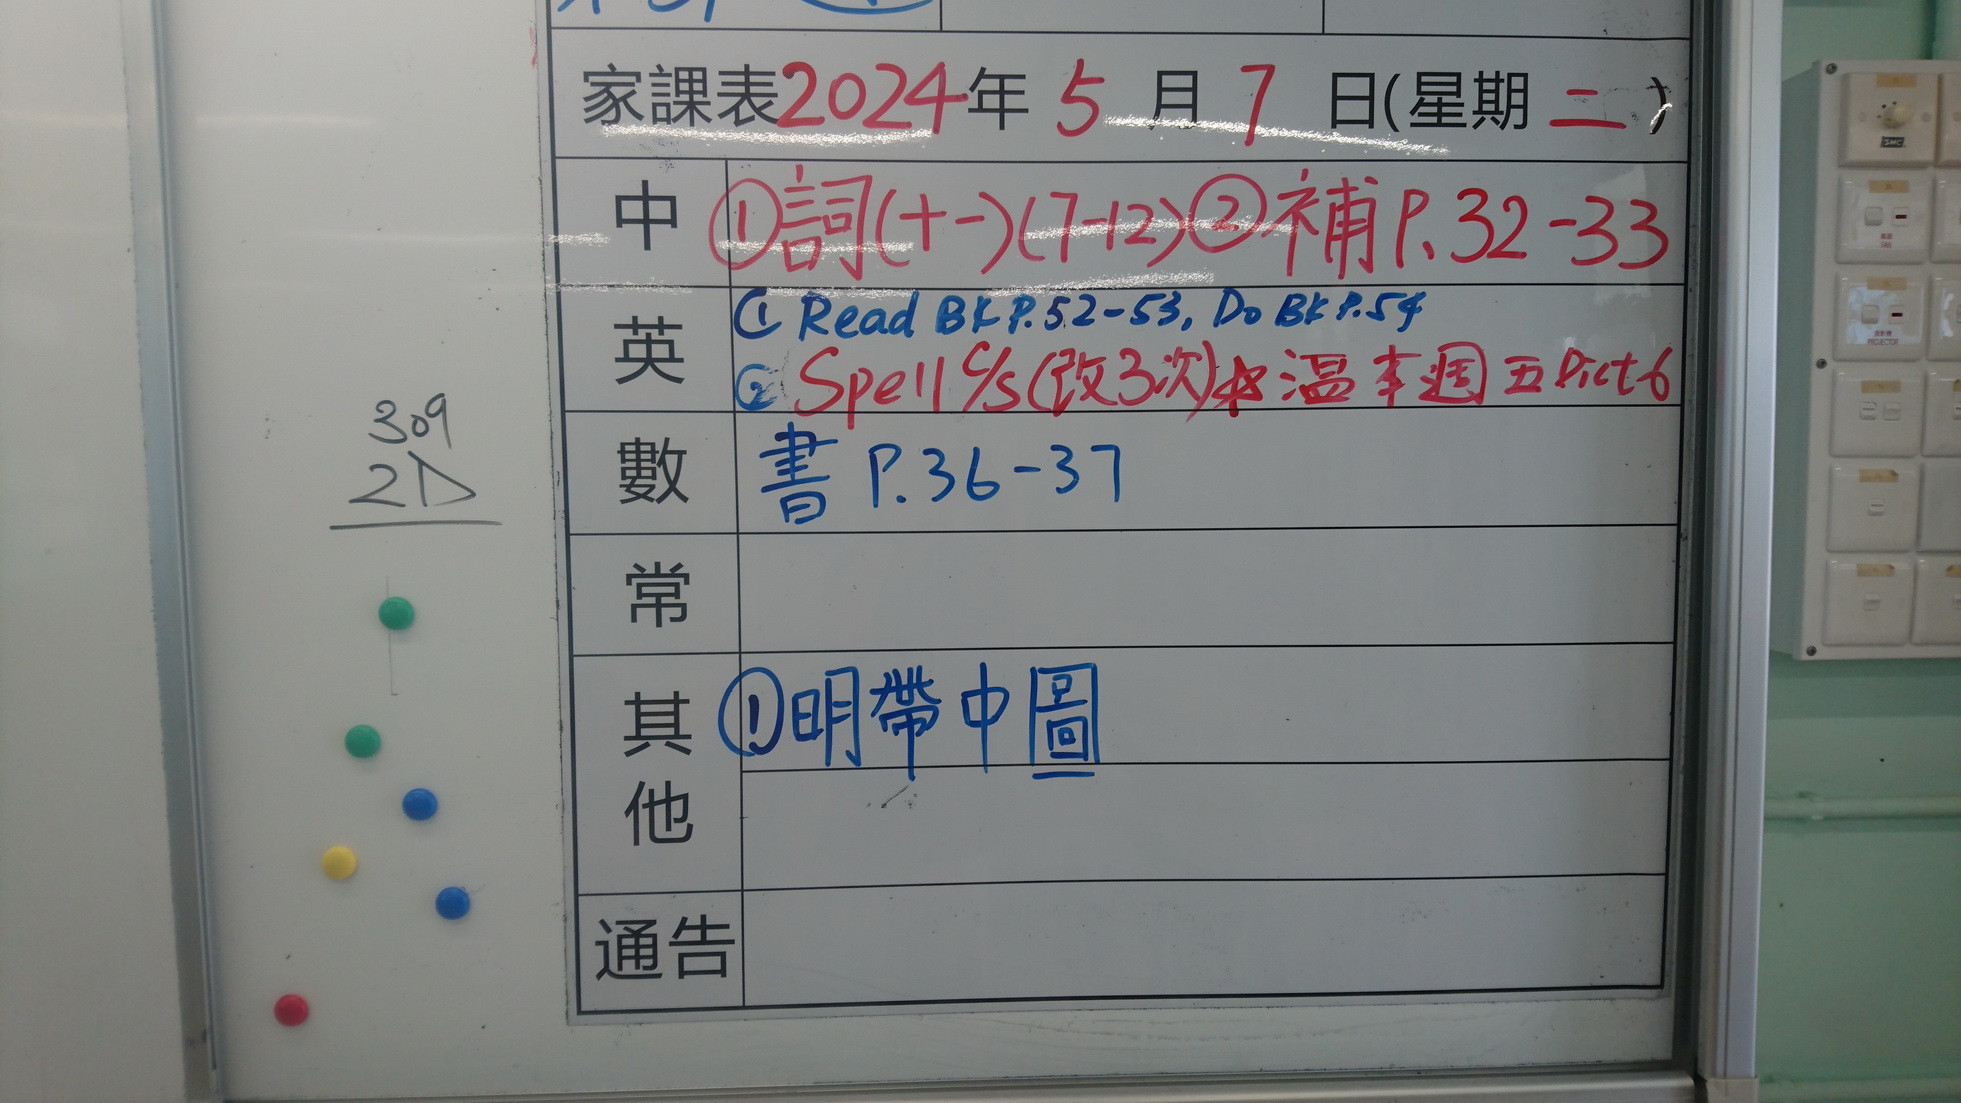 家課表2024年5月7日(星期二)
中 ①詞(十一)(7-12)②補P.32-33
英 ① Read BK P.52-53, Do BK P.54
② Spell C/S(改3次)*溫本週五Dict 6
數 書 P.36-37
常
其他 ①明帶中圖
通告
309
2D
PROJECTOR